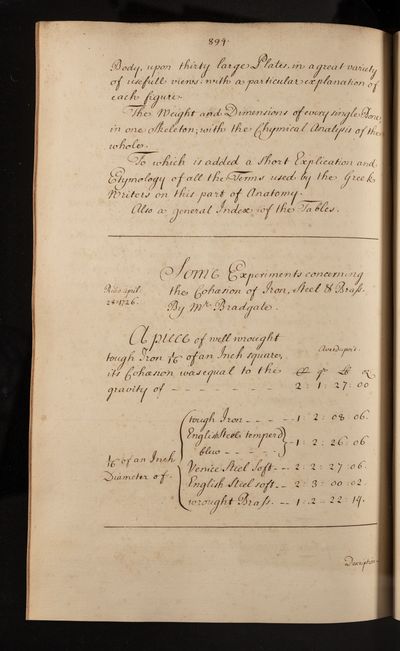 894
Body, upon thirty large Plates, in a great variety
of usefull views: with a particular explanation of
each figure.
The Weight and Dimensions of every single Bone
in one Skeleton; with the Chymical Analysis of the
whole.
To which is added a Short Explication and
Etymology of all the Terms used by the Greek
Writers on this part of Anatomy.
Also a general Index of the Tables.
Some Experiments concerning
the Cohæsion of Iron, Steel & Brass.
By Mr. Bradgate.
Read april
28 1726.
A piece of well wrought
tough Iron 1/16 of an Inch square,
its Cohæsion was equal to the
gravity of - - - - - -
Averdupois.
C qr. lb. oz
2: 1: 27: 00
1/16 of an Inch
Diameter of.
tough Iron - - - - 1: 2: 08: 06.
English Steel temperd
blew - - - - - 1: 2: 26: 06
Venice Steel Soft. - - 2: 2: 27: 06.
English Steel soft. - - 2: 3: 00: 02.
wrought Brass. - - 1: 2: 22: 14.
Description